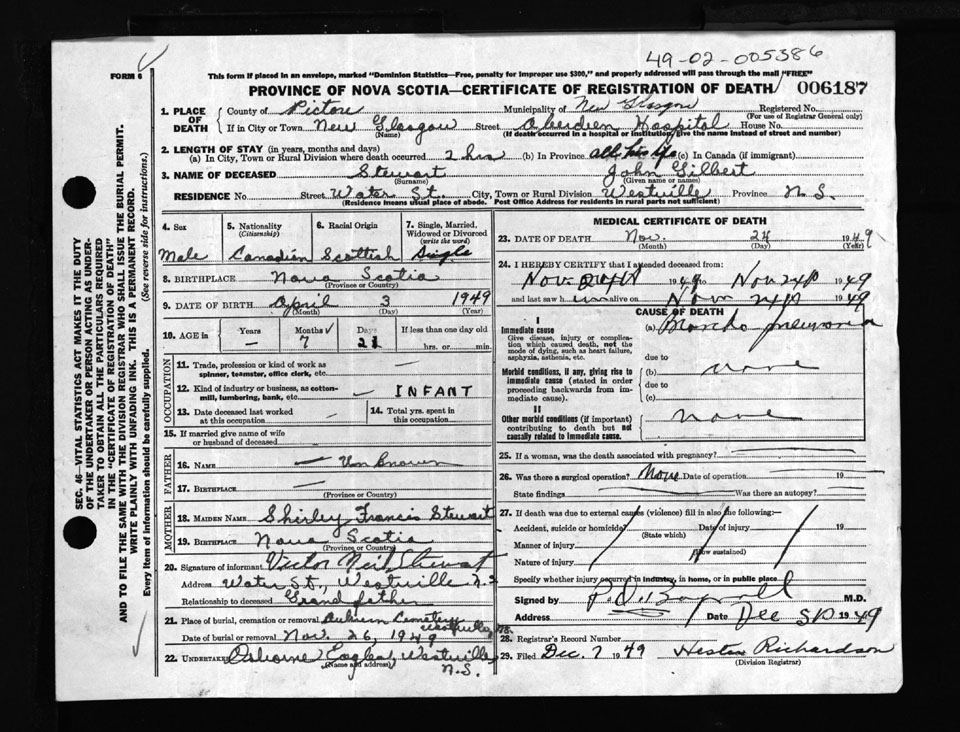 49-02-005386
FORM 6
This form if placed in an envelope, marked "Dominion Statistics—Free, penalty for improper use $300," and properly addressed will pass through the mail "FREE"
PROVINCE OF NOVA SCOTIA—CERTIFICATE OF REGISTRATION OF DEATH 006187
1. PLACE OF DEATH County of Pictou Municipality of New Glasgow Registered No. (For use of Registrar General only)
If in City or Town New Glasgow (Name) Street Aberdeen Hospital House No.
(If death occurred in a hospital or institution, give the name instead of street and number)
2. LENGTH OF STAY (in years, months and days)
(a) In City, Town or Rural Division where death occurred 2 hrs (b) In Province all his life (c) In Canada (if immigrant)
3. NAME OF DECEASED Stewart (Surname) John Gilbert (Given name or names)
RESIDENCE No. Street Water St. City, Town or Rural Division Westville Province N.S.
(Residence means usual place of abode. Post Office Address for residents in rural parts not sufficient)
SEC. 46—VITAL STATISTICS ACT MAKES IT THE DUTY
OF THE UNDERTAKER OR PERSON ACTING AS UNDER-
TAKER TO OBTAIN ALL THE PARTICULARS REQUIRED
IN THE "CERTIFICATE OF REGISTRATION OF DEATH"
AND TO FILE THE SAME WITH THE DIVISION REGISTRAR WHO SHALL ISSUE THE BURIAL PERMIT.
WRITE PLAINLY WITH UNFADING INK. THIS IS A PERMANENT RECORD.
Every item of information should be carefully supplied. (See reverse side for instructions.)
4. Sex Male
5. Nationality (Citizenship) Canadian
6. Racial Origin Scottish
7. Single, Married, Widowed or Divorced (write the word) Single
8. BIRTHPLACE Nova Scotia
(Province or Country)
9. DATE OF BIRTH April 3 1949
(Month) (Day) (Year)
10. AGE in Years — Months 7 Days 21 If less than one day old hrs. or min.
OCCUPATION
11. Trade, profession or kind of work as spinner, teamster, office clerk, etc. —
12. Kind of industry or business, as cotton-mill, lumbering, bank, etc. — INFANT
13. Date deceased last worked at this occupation —
14. Total yrs. spent in this occupation
15. If married give name of wife or husband of deceased
FATHER
16. NAME — Unknown
17. BIRTHPLACE —
(Province or Country)
MOTHER
18. MAIDEN NAME Shirley Francis Stewart
19. BIRTHPLACE Nova Scotia
(Province or Country)
20. Signature of informant Victor Neil Stewart
Address Water St., Westville N.S
Relationship to deceased Grandfather
21. Place of burial, cremation or removal Auburn Cemetery Westville, N.S.
Date of burial or removal Nov. 26, 1949
22. UNDERTAKER Osborne Eagles, Westville, N.S.
(Name and address)
MEDICAL CERTIFICATE OF DEATH
23. DATE OF DEATH Nov. 24 1949
(Month) (Day) (Year)
24. I HEREBY CERTIFY that I attended deceased from:
Nov. 24th 1949 to Nov 24th 1949
and last saw him alive on Nov 24th 1949
CAUSE OF DEATH
I
Immediate cause
Give disease, injury or complication which caused death, not the mode of dying, such as heart failure, asphyxia, asthenia, etc.
(a) Broncho pneumonia
due to
Morbid conditions, if any, giving rise to immediate cause (stated in order proceeding backwards from immediate cause).
(b) none
due to
(c)
II
Other morbid conditions (if important) contributing to death but not causally related to immediate cause.
none
25. If a woman, was the death associated with pregnancy?
26. Was there a surgical operation? None Date of operation 19
State findings Was there an autopsy?
27. If death was due to external causes (violence) fill in also the following:—
Accident, suicide or homicide? (State which) Date of injury 19
Manner of injury (How sustained)
Nature of injury
Specify whether injury occurred in industry, in home, or in public place
Signed by M.D.
Address Date Dec 5th 1949
28. Registrar's Record Number
29. Filed Dec. 7 1949 Richardson
(Division Registrar)